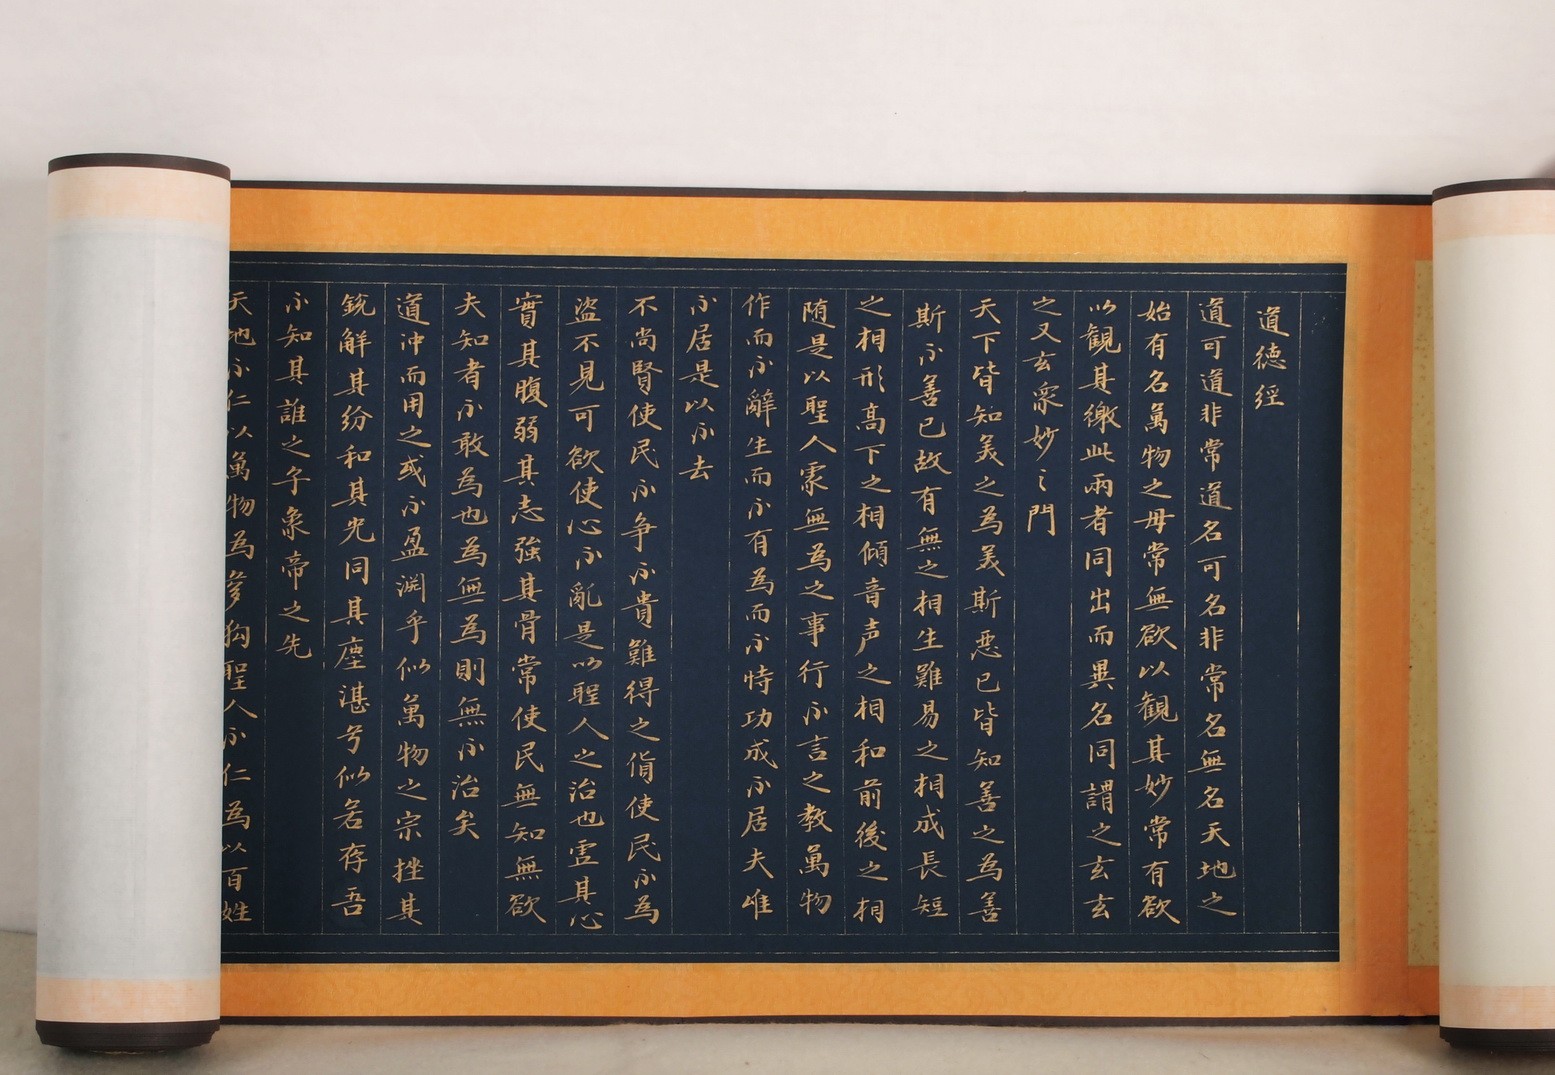 道德經
道可道非常道名可名非常名無名天地之
始有名萬物之母常無欲以觀其妙常有欲
以觀其徼此兩者同出而異名同謂之玄玄
之又玄眾妙之門
天下皆知美之為美斯惡已皆知善之為善
斯不善已故有無之相生難易之相成長短
之相形高下之相傾音声之相和前後之相
随是以聖人處無為之事行不言之教萬物
作而不辭生而不有為而不恃功成不居夫唯
不居是以不去
不尚賢使民不争不貴難得之貨使民不為
盜不見可欲使心不亂是以聖人之治也虛其心
實其腹弱其志強其骨常使民無知無欲
夫知者不敢為也為無為則無不治矣
道沖而用之或不盈淵乎似萬物之宗挫其
銳解其紛和其光同其塵湛兮似若存吾
不知其誰之子象帝之先
天地不仁以萬物為芻狗聖人不仁為以百姓